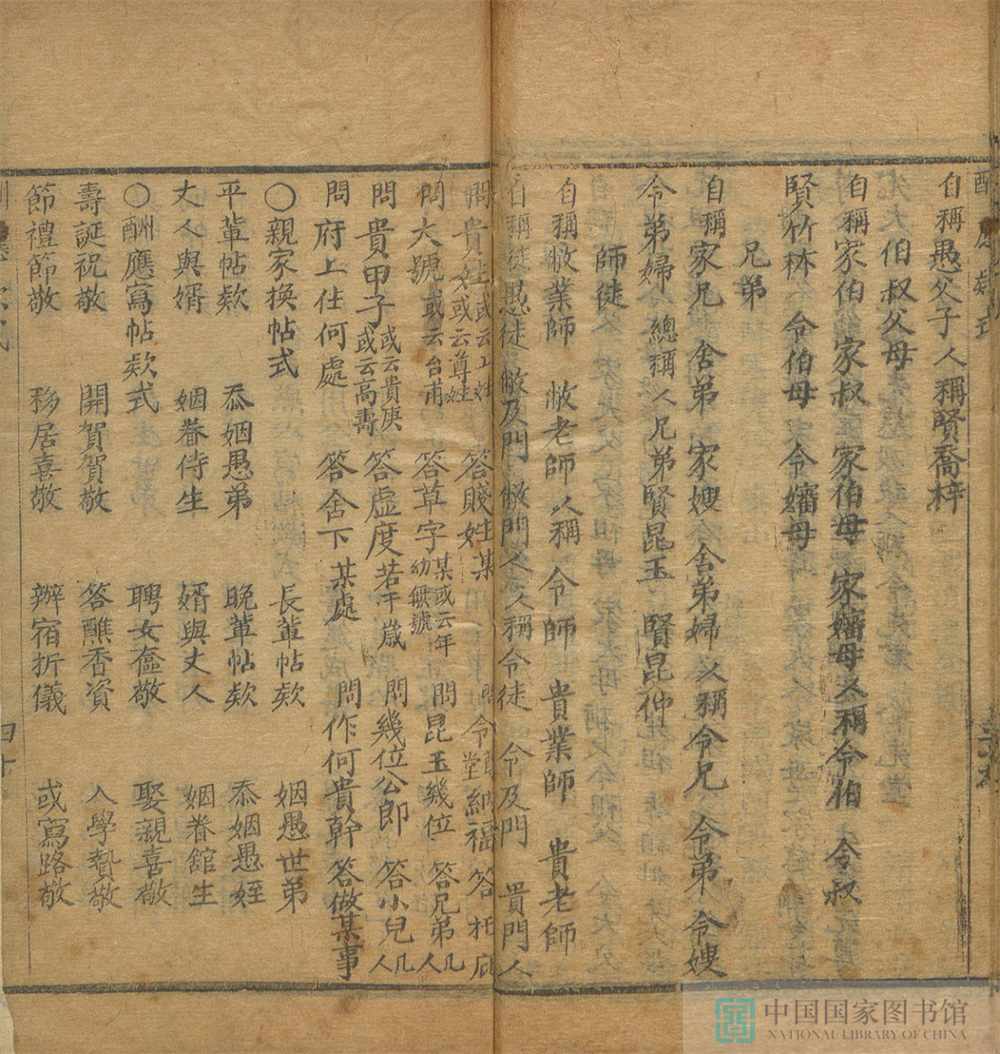 自稱愚父子 人稱賢喬梓
伯叔父母
自稱家伯 家叔 家伯母 家嬸母 人稱令伯 令叔
賢竹林 令伯母 令嬸母
兄弟
自稱家兄 舍弟 家嫂 舍弟婦 人稱令兄 令弟 令嫂
令弟婦 總稱人兄弟賢昆玉 賢昆仲
師徒
自稱敝業師 敝老師 人稱 令師 貴業師 貴老師
自稱徒愚徒 敝及門 敝門人 人稱令徒 令及門 貴門人
問貴姓 或云上姓 又或云尊姓 答賤姓某 問令尊堂納福 答托庇
問大號 或云台甫 答草字 某或云年幼無號 問昆玉幾位 答兄弟几人
問貴甲子 或云貴庚 或云高壽 答虛度若干歲 問幾位公郎 答小兒几人
問府上住何處 答舍下某處 問作何貴幹 答做某事
〇親家換帖式 長輩帖欵 姻愚世弟
平輩帖欵 忝姻愚弟 晚輩帖欵 忝姻愚姪
丈人與婿 姻眷侍生 婿與丈人 姻眷舘生
〇酬應寫帖欵式 聘女奩敬 娶親喜敬
壽誕祝敬 開賀賀敬 答醮香資 入學贄敬
節禮節敬 移居喜敬 辦宿折儀 或寫路敬
四十
中国国家图书馆
NATIONAL LIBRARY OF CHINA